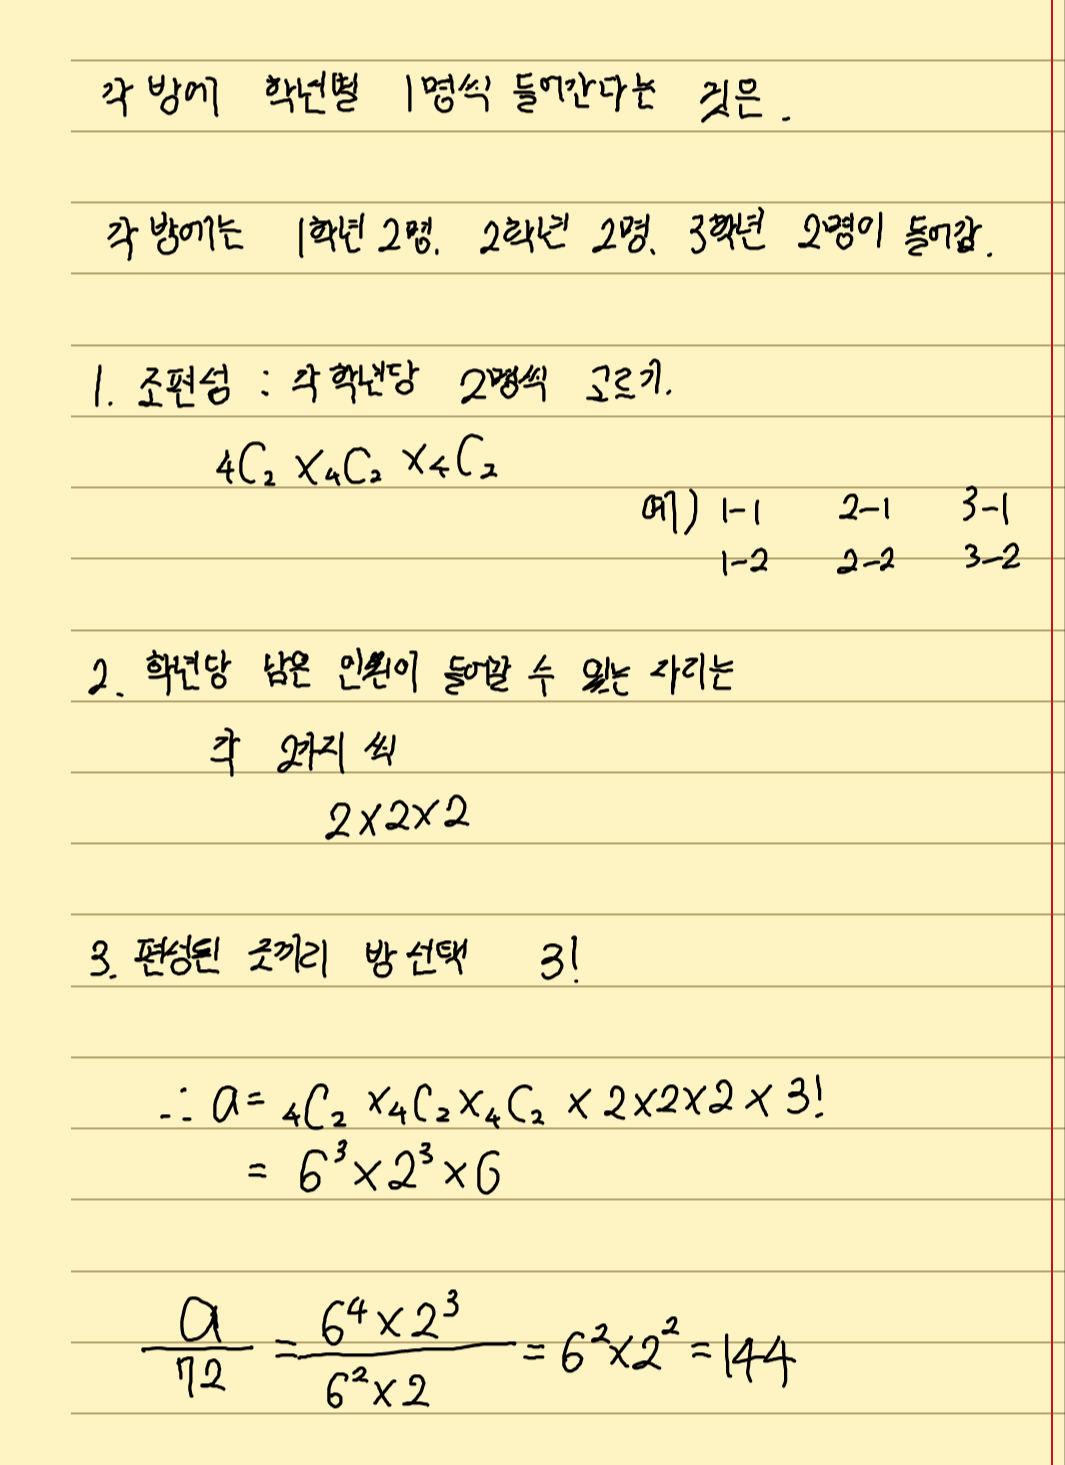 각 방에 학년별 1명씩 들어간다는 것은.
각 방에는 1학년 2명. 2학년 2명. 3학년 2명이 들어감.
1. 조편성 : 각 학년당 2명씩 고르기.
₄C₂ ×₄C₂ ×₄C₂
예) 1-1 2-1 3-1
1-2 2-2 3-2
2. 학년당 남은 인원이 들어갈 수 있는 자리는
각 2가지 씩
2×2×2
3. 편성된 조끼리 방 선택 3!
∴ a = ₄C₂ ×₄C₂×₄C₂ × 2×2×2 × 3!
= 6³×2³×6
a/72 = 6⁴×2³/6²×2 = 6²×2² = 144